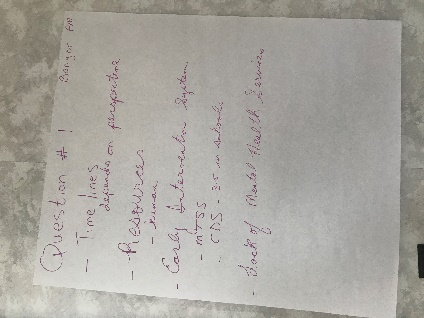 Bangor AM
Question # 1
- Time lines
depends on perspective
- Resources
- human
- Early Intervention System
- MTSS
- CDS - 3-5 in schools
- Lack of Mental Health Services